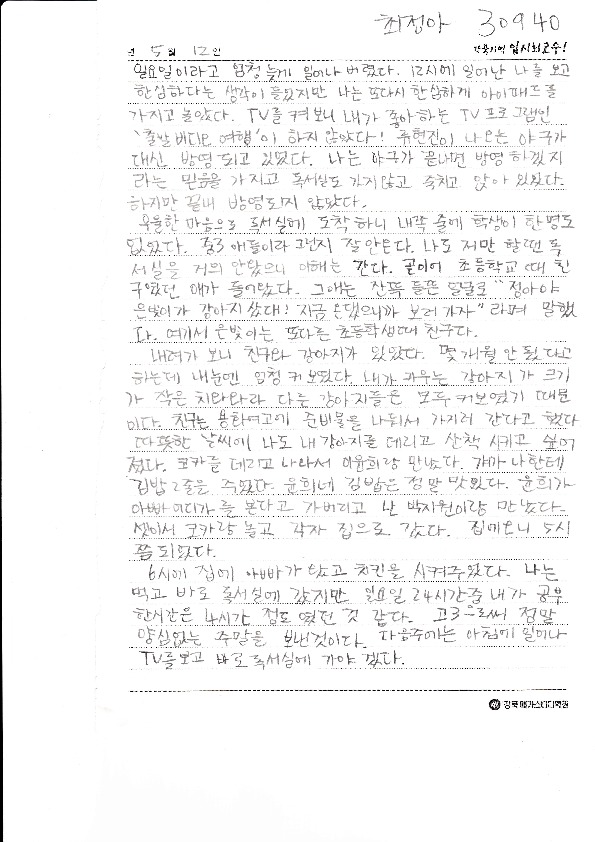 최정아 30940
년 5월 12일 강북지역 입시최고수!
일요일이라고 엄청 늦게 일어나 버렸다. 12시에 일어난 나를 보고
한심하다는 생각이 들었지만 나는 또다시 한심하게 아이패드를
가지고 놀았다. TV를 켜보니 내가 좋아하는 TV 프로그램인
'출발 비디오 여행'이 하지 않았다! 류현진이 나오는 야구가
대신 방영 되고 있었다. 나는 야구가 끝나면 방영 하겠지
라는 믿음을 가지고 독서실도 가지않고 죽치고 앉아 있었다.
하지만 끝내 방영되지 않았다.
우울한 마음으로 독서실에 도착하니 내쪽 줄에 학생이 한명도
없었다. 중3 애들이라 그런지 잘 안온다. 나도 저만 할땐 독
서실을 거의 안왔으니 이해는 간다. 곧이어 초등학교때 친
구였던 애가 들어왔다. 그애는 잔뜩 들뜬 얼굴로 "정아야
은빛이가 강아지 샀대! 지금 온댔으니까 보러가자" 라며 말했
다. 여기서 은빛이는 또다른 초등학생때 친구다.
내려가 보니 친구와 강아지가 있었다. 몇개월 안 됬다고
하는데 내눈엔 엄청 커보였다. 내가 키우는 강아지가 크기
가 작은 치와와라 다른 강아지들은 모두 커보였기 때문
이다. 친구는 용화여고에 준비물을 나눠서 가지러 간다고 했다
따뜻한 날씨에 나도 내 강아지를 데리고 산책 시키고 싶어
졌다. 코카를 데리고 나와서 이윤희랑 만났다. 걔가 나한테
김밥 2줄을 주었다. 윤희네 김밥은 정말 맛있다. 윤희가
아빠 어디가를 본다고 가버리고 난 박지원이랑 만났다.
셋이서 코카랑 놀고 각자 집으로 갔다. 집에오니 5시
쯤 되었다.
6시에 집에 아빠가 왔고 치킨을 시켜주었다. 나는
먹고 바로 독서실에 갔지만 일요일 24시간중 내가 공부
한시간은 4시간 정도 였던 것 같다. 고3으로써 정말
양심없는 주말을 보낸것이다. 다음주에는 아침에 일어나
TV를 보고 바로 독서실에 가야 겠다.
강북 메가스터디학원